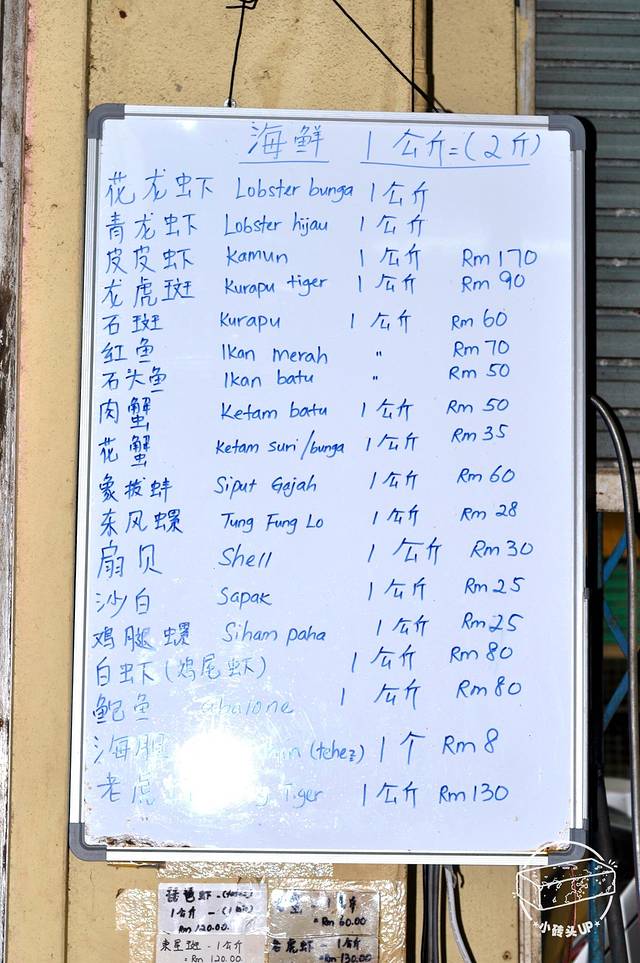 海鲜 1公斤=(2斤)
花龙虾 Lobster bunga 1公斤
青龙虾 Lobster hijau 1公斤
皮皮虾 Kamun 1公斤 Rm 170
龙虎斑 Kurapu tiger 1公斤 Rm 90
石斑 Kurapu 1公斤 Rm 60
红鱼 Ikan merah " Rm 70
石头鱼 Ikan batu " Rm 50
肉蟹 Ketam batu 1公斤 Rm 50
花蟹 Ketam suri/bunga 1公斤 Rm 35
象拔蚌 Siput Gajah 1公斤 Rm 60
东风螺 Tung Fung Lo 1公斤 Rm 28
扇贝 Shell 1公斤 Rm 30
沙白 Sapak 1公斤 Rm 25
鸡腿螺 Siham paha 1公斤 Rm 25
白虾(鸡尾虾) 1公斤 Rm 80
鲍鱼 abalone 1公斤 Rm 80
海胆 (tehez) 1个 Rm 8
老虎 Tiger 1公斤 Rm 130
琵琶虾
1公斤
Rm 120.00
= Rm 60.00
東星斑 - 1公斤
= Rm 120.00
老虎虾 - 1公斤
= Rm 130.00
小砖头UP